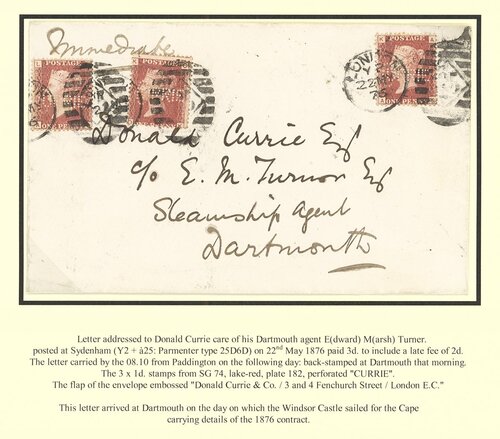 Immediate
POSTAGE
POSTAGE
POSTAGE
ONE PENNY
ONE PENNY
LONDON
22 MY
76
Donald Currie Esq
c/o E. M. Turnor Esq
Steamship Agent
Dartmouth
Letter addressed to Donald Currie care of his Dartmouth agent E(dward) M(arsh) Turner.
posted at Sydenham (Y2 + à25: Parmenter type 25D6D) on 22nd May 1876 paid 3d. to include a late fee of 2d.
The letter carried by the 08.10 from Paddington on the following day: back-stamped at Dartmouth that morning.
The 3 x 1d. stamps from SG 74, lake-red, plate 182, perforated "CURRIE".
The flap of the envelope embossed "Donald Currie & Co. / 3 and 4 Fenchurch Street / London E.C."
This letter arrived at Dartmouth on the day on which the Windsor Castle sailed for the Cape
carrying details of the 1876 contract.